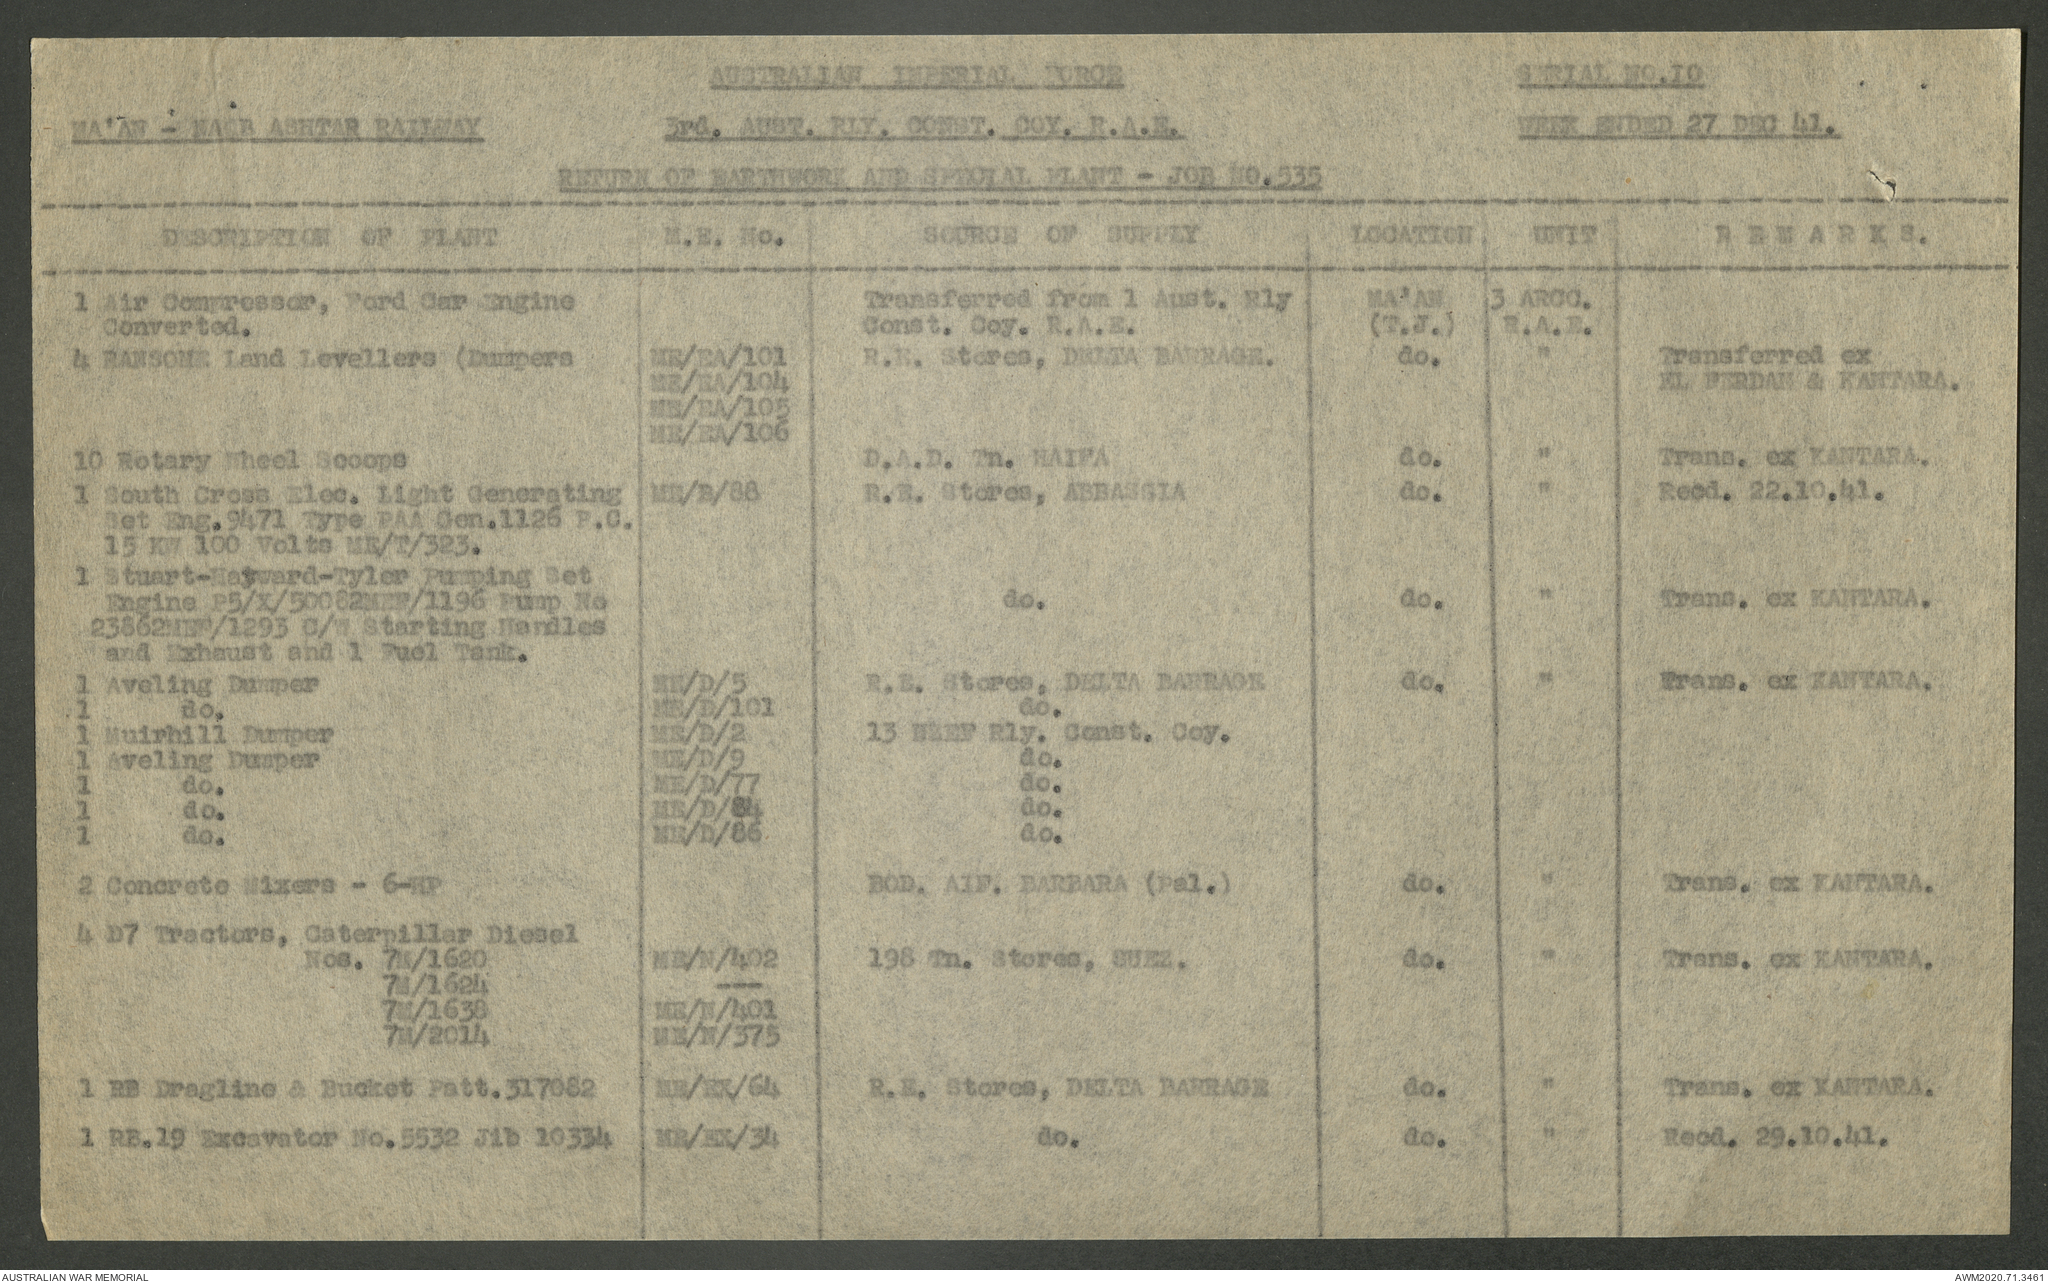 AUSTRALIAN IMPERIAL FORCE SERIAL NO.10
MA'AN - NAQB ASHTAR RAILWAY 3rd. AUST. RLY. CONST. COY. R.A.E. WEEK ENDED 27 DEC 41.
RETURN OF EARTHWORK AND SPECIAL PLANT - JOB NO.535
DESCRIPTION OF PLANT M.E. No. SOURCE OF SUPPLY LOCATION UNIT R E M A R K S.
1 Air Compressor, Ford Car Engine Transferred from 1 Aust. Rly MA'AN 3 ARCC.
Converted. Const. Coy. R.A.E. (T.J.) R.A.E.
4 RANSOME Land Levellers (Dumpers ME/EA/101 R.E. Stores, DELTA BARRAGE. do. " Transferred ex
ME/EA/104 EL FERDAN & KANTARA.
ME/EA/105
ME/EA/106
10 Rotary Wheel Scoops D.A.D. Tn. HAIFA do. " Trans. ex KANTARA.
1 South Cross Elec. Light Generating ME/B/88 R.E. Stores, ABBASSIA do. " Recd. 22.10.41.
Set Eng.9471 Type PAA Gen.1126 P.C.
15 KW 100 Volts ME/T/323.
1 Stuart-Hayward-Tyler Pumping Set
Engine P5/X/50082MEF/1196 Pump No do. do. " Trans. ex KANTARA.
23862MEF/1293 C/W Starting Handles
and Exhaust and 1 Fuel Tank.
1 Aveling Dumper ME/D/5 R.E. Stores, DELTA BARRAGE do. " Trans. ex KANTARA.
1 do. ME/D/101 do.
1 Muirhill Dumper ME/D/2 13 NZEF Rly. Const. Coy.
1 Aveling Dumper ME/D/9 do.
1 do. ME/D/77 do.
1 do. ME/D/84 do.
1 do. ME/D/86 do.
2 Concrete Mixers - 6-HP BOD. AIF. BARBARA (Pal.) do. " Trans. ex KANTARA.
4 D7 Tractors, Caterpillar Diesel
Nos. 7M/1620 ME/N/402 198 Tn. Stores, SUEZ. do. " Trans. ex KANTARA.
7M/1624 ---
7M/1638 ME/N/401
7M/2014 ME/N/375
1 RB Dragline & Bucket Patt.317082 ME/EX/64 R.E. Stores, DELTA BARRAGE do. " Trans. ex KANTARA.
1 RB.19 Excavator No.5532 Jib 10334 ME/EX/34 do. do. " Recd. 29.10.41.
AUSTRALIAN WAR MEMORIAL AWM2020.71.3461